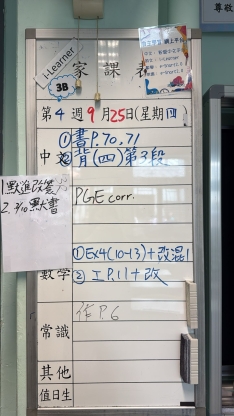 i-Learner
3B
家課表
第4週9月25日(星期四
中文
①書P.70,71
②背(四)第3段
1默進改簽
2. 3/10默書
PGE corr.
數學
①Ex4(10-13)+改混1
②工P.11+改
常識
作P.6
其他
值日生
尊敬